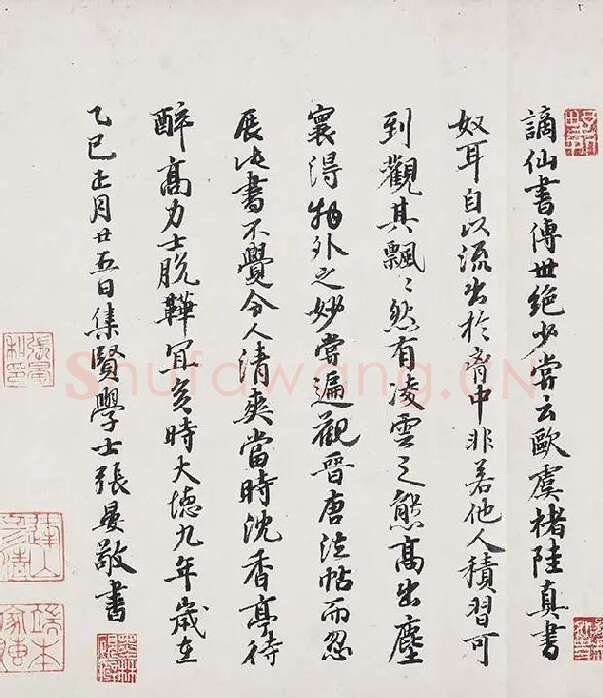 謫仙書傳世絕少嘗云歐虞褚陸真書
奴耳自以流出於胷中非若他人積習可
到觀其飄〻然有凌雲之態高出塵
寰得物外之妙嘗遍觀晉唐法帖而忽
展此書不覺令人清爽當時沈香亭待
醉高力士脫鞾宜矣時大德九年歲在
乙巳正月廿五日集賢學士張晏敬書
Shufawang.CN